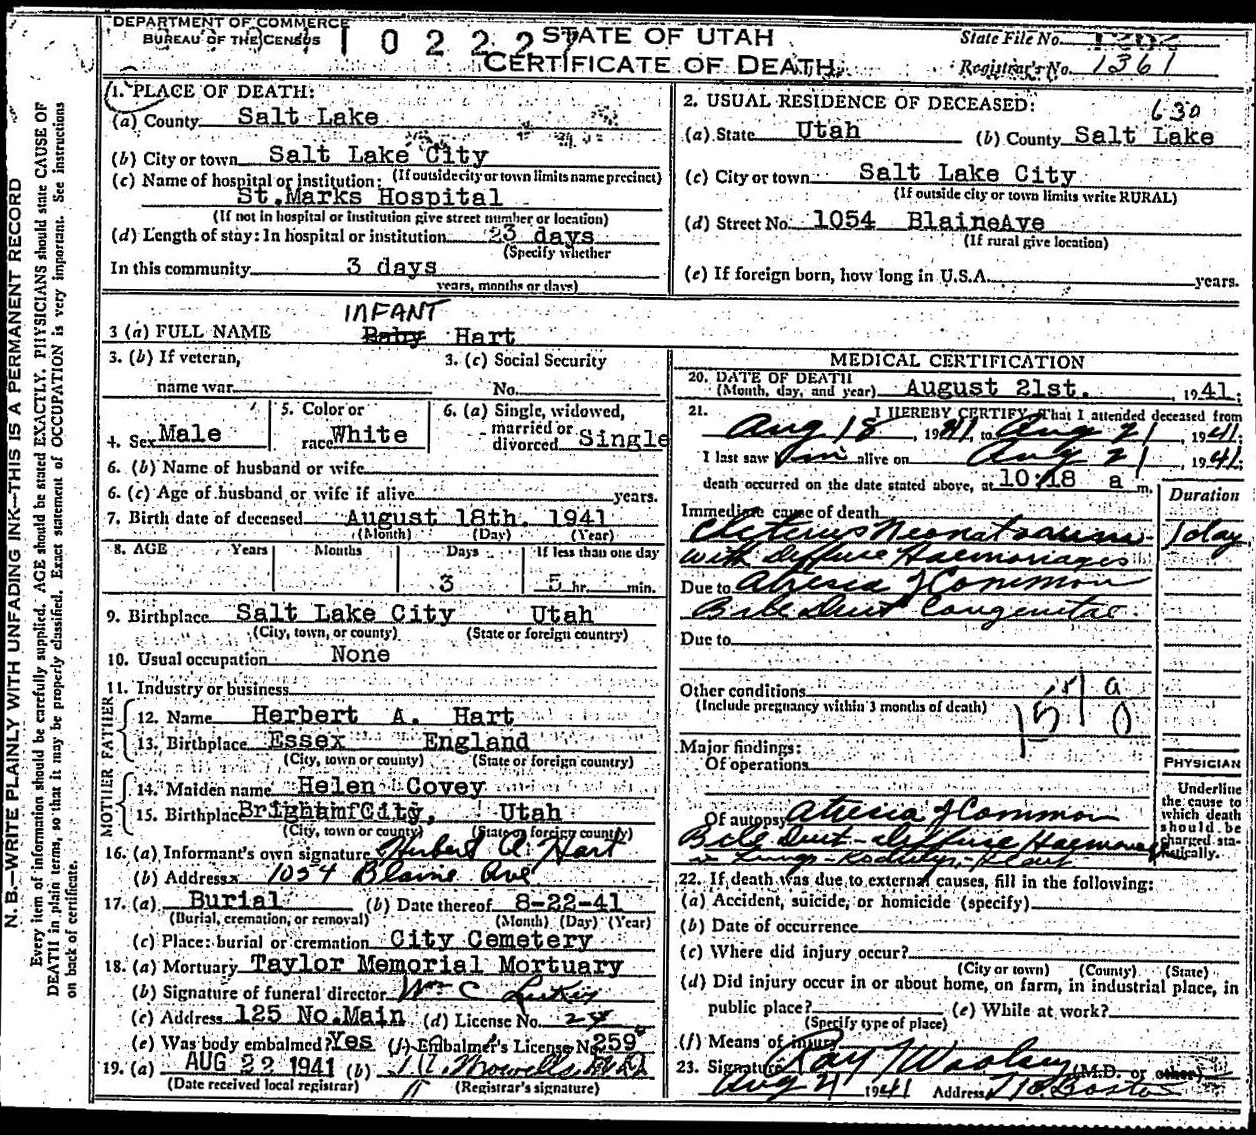 DEPARTMENT OF COMMERCE
BUREAU OF THE CENSUS
102227
STATE OF UTAH
CERTIFICATE OF DEATH
State File No.
Registrar's No. 1361
N. B.—WRITE PLAINLY WITH UNFADING INK—THIS IS A PERMANENT RECORD
Every item of information should be carefully supplied. AGE should be stated EXACTLY. PHYSICIANS should state CAUSE OF
DEATH in plain terms, so that it may be properly classified. Exact statement of OCCUPATION is very important. See instructions
on back of certificate.
1. PLACE OF DEATH:
(a) County Salt Lake
(b) City or town Salt Lake City
(If outside city or town limits name precinct)
(c) Name of hospital or institution:
St.Marks Hospital
(If not in hospital or institution give street number or location)
(d) Length of stay: In hospital or institution 3 days
(Specify whether
In this community 3 days
years, months or days)
2. USUAL RESIDENCE OF DECEASED:
630
(a) State Utah (b) County Salt Lake
(c) City or town Salt Lake City
(If outside city or town limits write RURAL)
(d) Street No. 1054 BlaineAve
(If rural give location)
(e) If foreign born, how long in U.S.A. years.
INFANT
3 (a) FULL NAME Baby Hart
3. (b) If veteran, 3. (c) Social Security
name war No.
4. Sex Male 5. Color or race White 6. (a) Single, widowed, married or divorced Single
6. (b) Name of husband or wife
6. (c) Age of husband or wife if alive years.
7. Birth date of deceased August 18th. 1941
(Month) (Day) (Year)
8. AGE Years Months Days If less than one day
3 5 hr. min.
9. Birthplace Salt Lake City Utah
(City, town, or county) (State or foreign country)
10. Usual occupation None
11. Industry or business
FATHER
12. Name Herbert A. Hart
13. Birthplace Essex England
(City, town or county) (State or foreign country)
MOTHER
14. Maiden name Helen Covey
15. Birthplace Brigham City, Utah
(City, town or county) (State or foreign county)
16. (a) Informant's own signature Herbert A. Hart
(b) Address 1054 Blaine Ave
17. (a) Burial (b) Date thereof 8-22-41
(Burial, cremation, or removal) (Month) (Day) (Year)
(c) Place: burial or cremation City Cemetery
18. (a) Mortuary Taylor Memorial Mortuary
(b) Signature of funeral director Wm C
(c) Address 125 No.Main (d) License No. 24
(e) Was body embalmed? Yes (f) Embalmer's License No. 259
19. (a) AUG 22 1941 (b)
(Date received local registrar) (Registrar's signature)
MEDICAL CERTIFICATION
20. DATE OF DEATH
(Month, day, and year) August 21st. , 1941;
21. I HEREBY CERTIFY, That I attended deceased from
Aug 18, 1941, to Aug 21, 1941;
I last saw him alive on Aug 21, 1941;
death occurred on the date stated above, at 10:18 a m.
Duration
Immediate cause of death
Icterus Neonatorum 1 day
with diffuse Haemorrages
Due to Atresia of Common
Bile Duct Congenital
Due to
Other conditions
(Include pregnancy within 3 months of death)
Major findings:
Of operations
Of autopsy Atresia of Common
Bile Duct - Diffuse
PHYSICIAN
Underline
the cause to
which death
should be
charged sta-
tistically.
22. If death was due to external causes, fill in the following:
(a) Accident, suicide, or homicide (specify)
(b) Date of occurrence
(c) Where did injury occur?
(City or town) (County) (State)
(d) Did injury occur in or about home, on farm, in industrial place, in
public place? (e) While at work?
(Specify type of place)
(f) Means of injury
23. Signature Ray T Woolsey (M.D. or other)
Aug 21 1941 Address